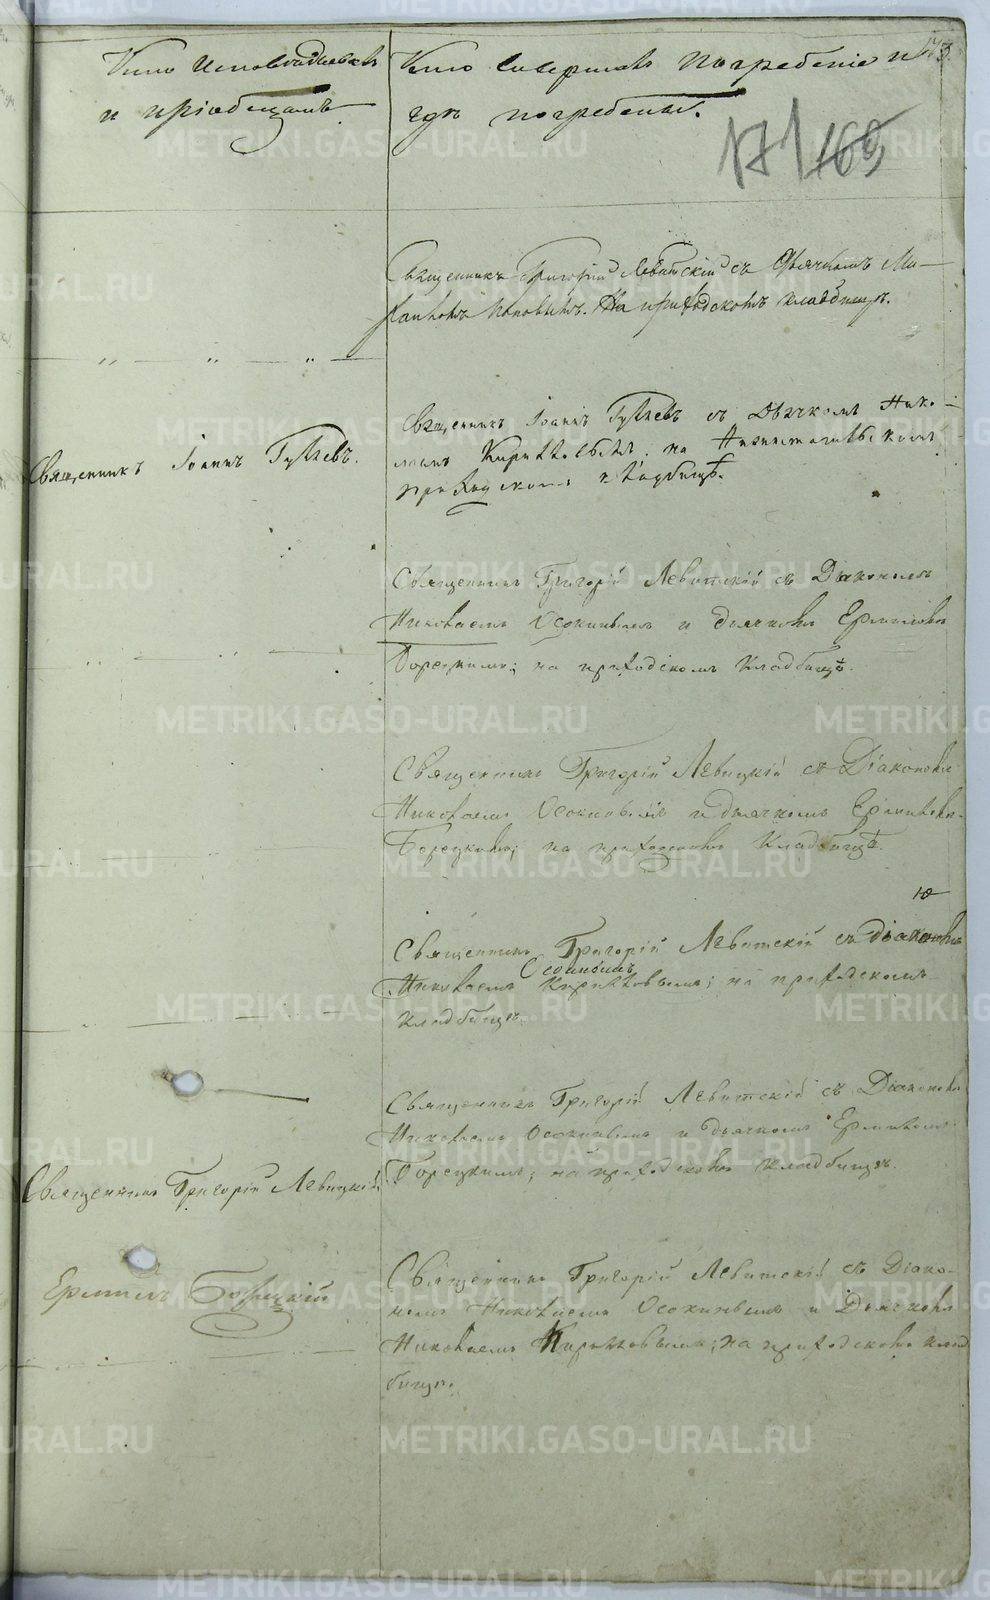 Кто исповѣдывалъ
и пріобщалъ
Кто совершалъ погребеніе и
гдѣ погребены.
171 169
Священникъ Григорій Левитскій съ Дьячкомъ
Поповымъ. На приходскомъ кладбищѣ.
Священникъ Іоаннъ
Священникъ Іоаннъ съ Дьячкомъ Нико-
на
приходскомъ кладбищѣ.
Священникъ Григорій Левитскій съ Діакономъ
Николаемъ Осокинымъ и дьячкомъ Ермиломъ
Борецкимъ; на приходскомъ кладбищѣ.
Священникъ Григорій Левицкій съ Діакономъ
Николаемъ Осокинымъ и дьячкомъ Ермиломъ
Борецкимъ; на приходскомъ Кладбищѣ.
Священникъ Григорій Левитскій съ діакономъ
Осокинымъ
Николаемъ; на приходскомъ
кладбищѣ.
Священникъ Григорій Левитскій съ Діакономъ
Николаемъ Осокинымъ и дьячкомъ Ермиломъ
Борецкимъ; на приходскомъ кладбищѣ.
Священникъ Григорій Левицкій
Ермилъ Борецкій
Священникъ Григорій Левитскій съ Діако-
номъ Николаемъ Осокинымъ и Дьячкомъ
Николаемъ; на приходскомъ клад
бищѣ.
METRIKI.GASO-URAL.RU